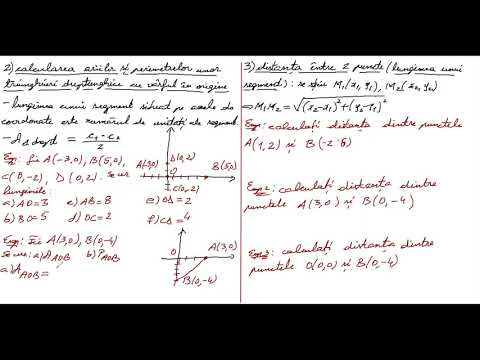 2) calcularea ariilor și perimetrelor unor
triunghiuri dreptunghice cu vârful în origine
- lungimea unui segment situat pe axele de
coordonate este numărul de unități ale segment.
- A Δ drept = c₁·c₂/2
Exp: fie A(-3,0), B(5,0),
C(0,-2), D(0,2). Se cer
lungimile:
a) AO=3 c) AB=8 e) OD=2
b) BO=5 d) DC=2 f) CD=4
A(-3,0) D(0,2)
O B(5,0)
C(0,-2)
Exp2: fie A(3,0), B(0,-4)
Se cere: a) A AOB b) P AOB
a) A AOB =
O A(3,0)
B(0,-4)
3) distanța între 2 puncte (lungimea unui
segment): se știu M₁(x₁,y₁), M₂(x₂,y₂)
⇒ M₁M₂ = √(x₂-x₁)²+(y₂-y₁)²
Exp1: calculați distanța dintre punctele
A(1,2) și B(-2;6)
Exp2: calculați distanța dintre
punctele A(3,0) și B(0,-4)
Exp3: calculați distanța dintre
punctele O(0,0) și B(0,-4)